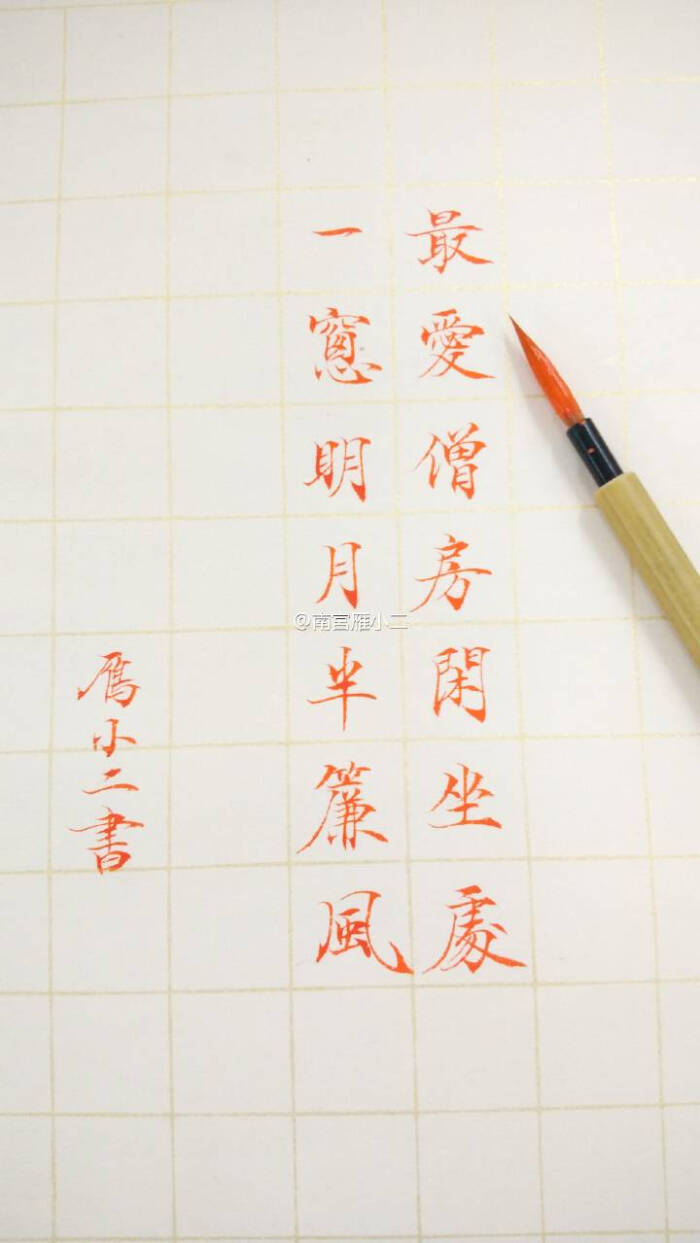 最愛僧房閑坐處
一窻明月半簾風
雁小二書
@南宫雁小二